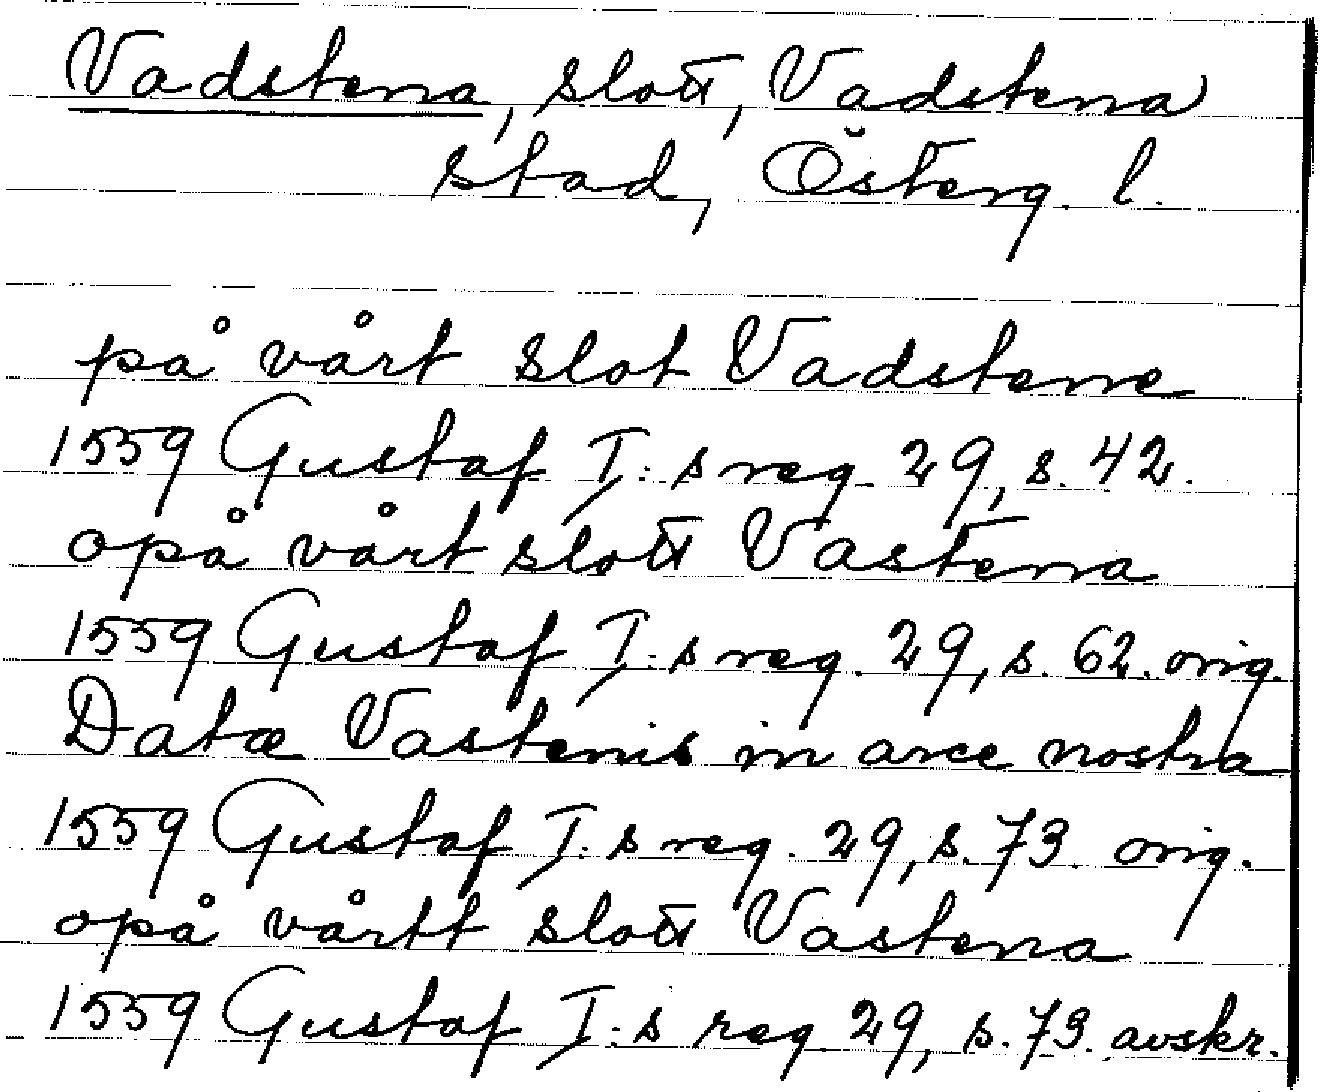 Vadstena, slott, Vadstena
stad, Österg. l.
på vårt slot Vadstene
1559 Gustaf I:s reg. 29, s. 42.
opå vårt slott Vastena
1559 Gustaf I:s reg. 29, s. 62. orig.
Datæ Vastenis in arce nostra
1559 Gustaf I:s reg. 29, s. 73. orig.
opå vårtt slott Vastena
1559 Gustaf I:s reg. 29, s. 73. avskr.